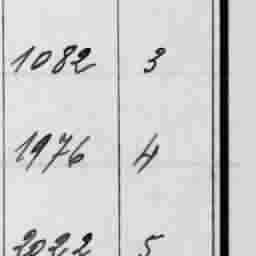 1082 3
1976 4
2022 5